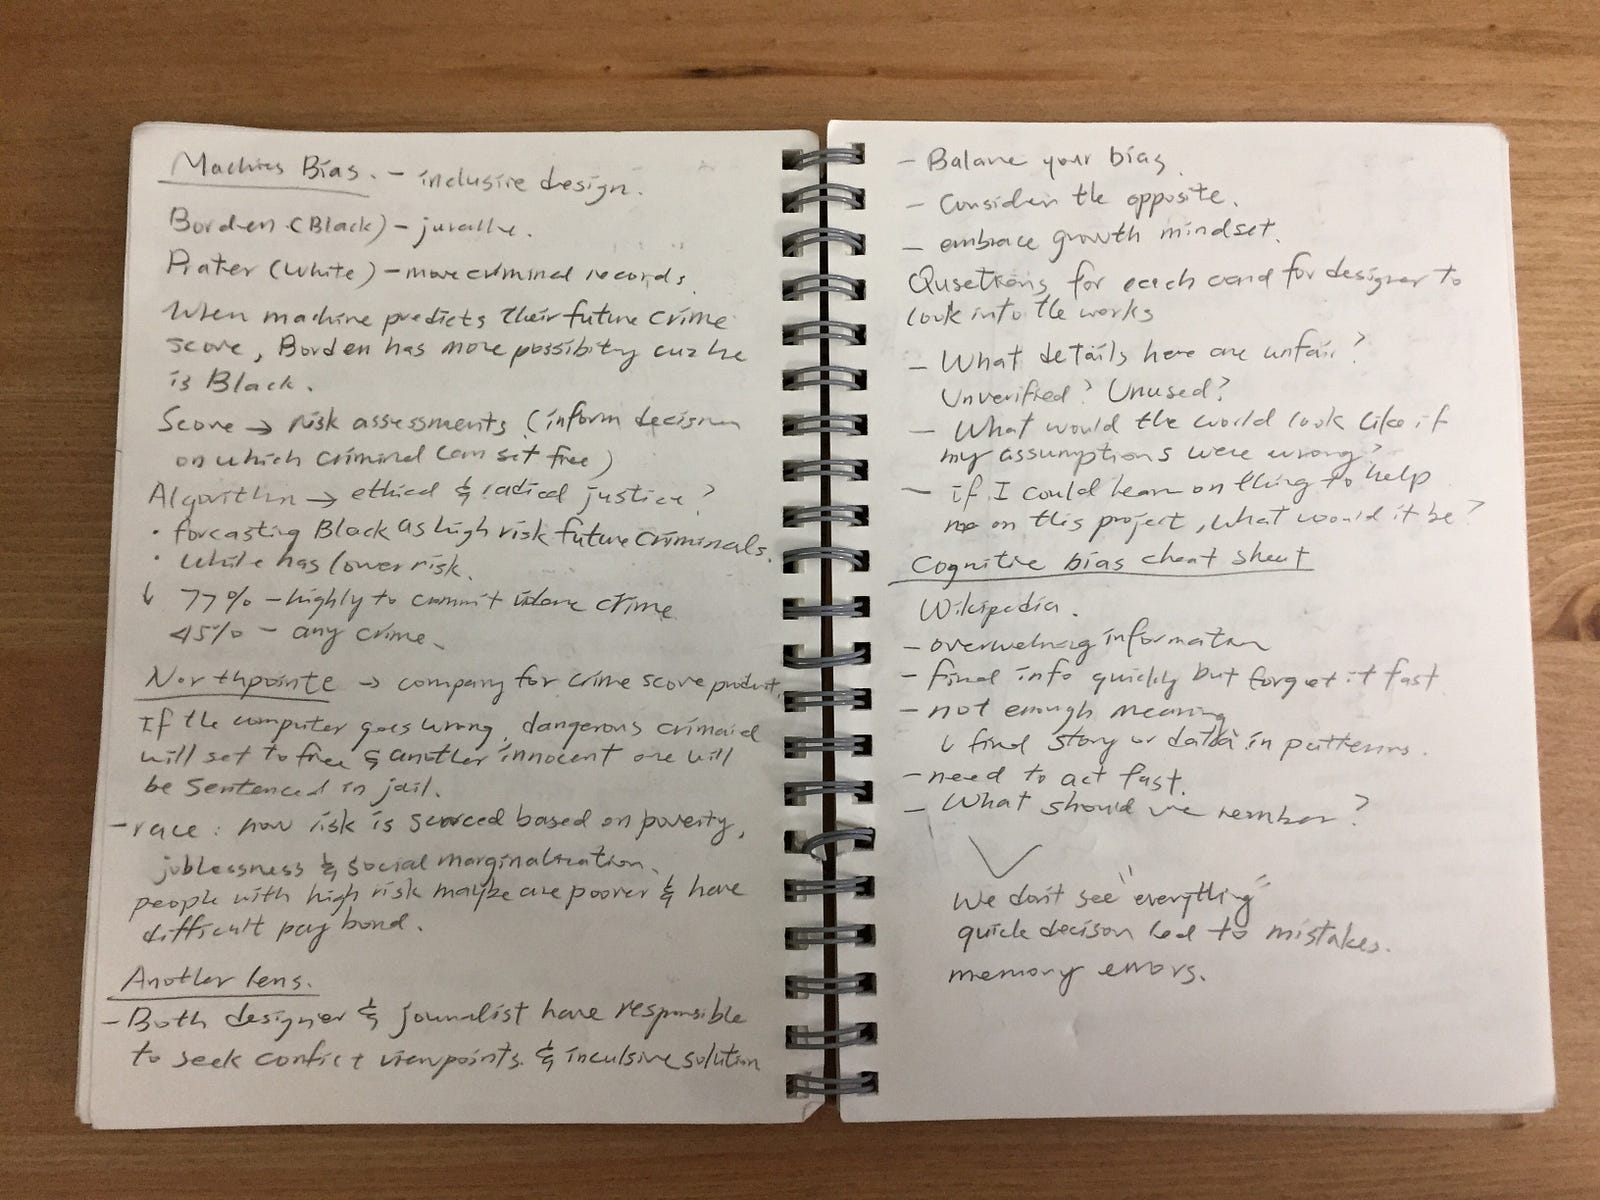 Machies Bias. - inclusive design.
Borden (Black) - juvalhe.
Prater (White) - more criminal records.
When machine predicts their future crime
score, Borden has more possibitry cuz he
is Black.
Score → risk assessments (inform decision
on which criminal can set free)
Algorithm → ethical & radical justice?
• forcasting Black as high risk future criminals.
• White has lower risk.
↳ 77% - highly to commit crime
45% - any crime.
Northpointe → company for crime score product.
If the computer goes wrong, dangerous crimaid
will set to free & another innocent one will
be sentenced in jail.
- race: how risk is scored based on poverty,
joblessness & social marginalization.
people with high risk maybe are poorer & have
difficult pay bond.
Another lens.
- Both designer & journalist have responsible
to seek confict viewpoints. & inculsive solution
- Balane your bias.
- Consider the opposite.
- embrace growth mindset.
Qusetions for each card for designer to
look into the works
- What details here are unfair?
Unverified? Unused?
- What would the world look like if
my assumptions were wrong?
- if I could learn on thing to help
me on this project, what would it be?
Cognitive bias cheat sheet
Wikipedia.
- overwelming information
- find info quickly but forget it fast
- not enough meaning
↳ find story or data in patterns.
- need to act fast.
- What should we rember?
We don't see "everything"
quick decison led to mistakes.
memory errors.